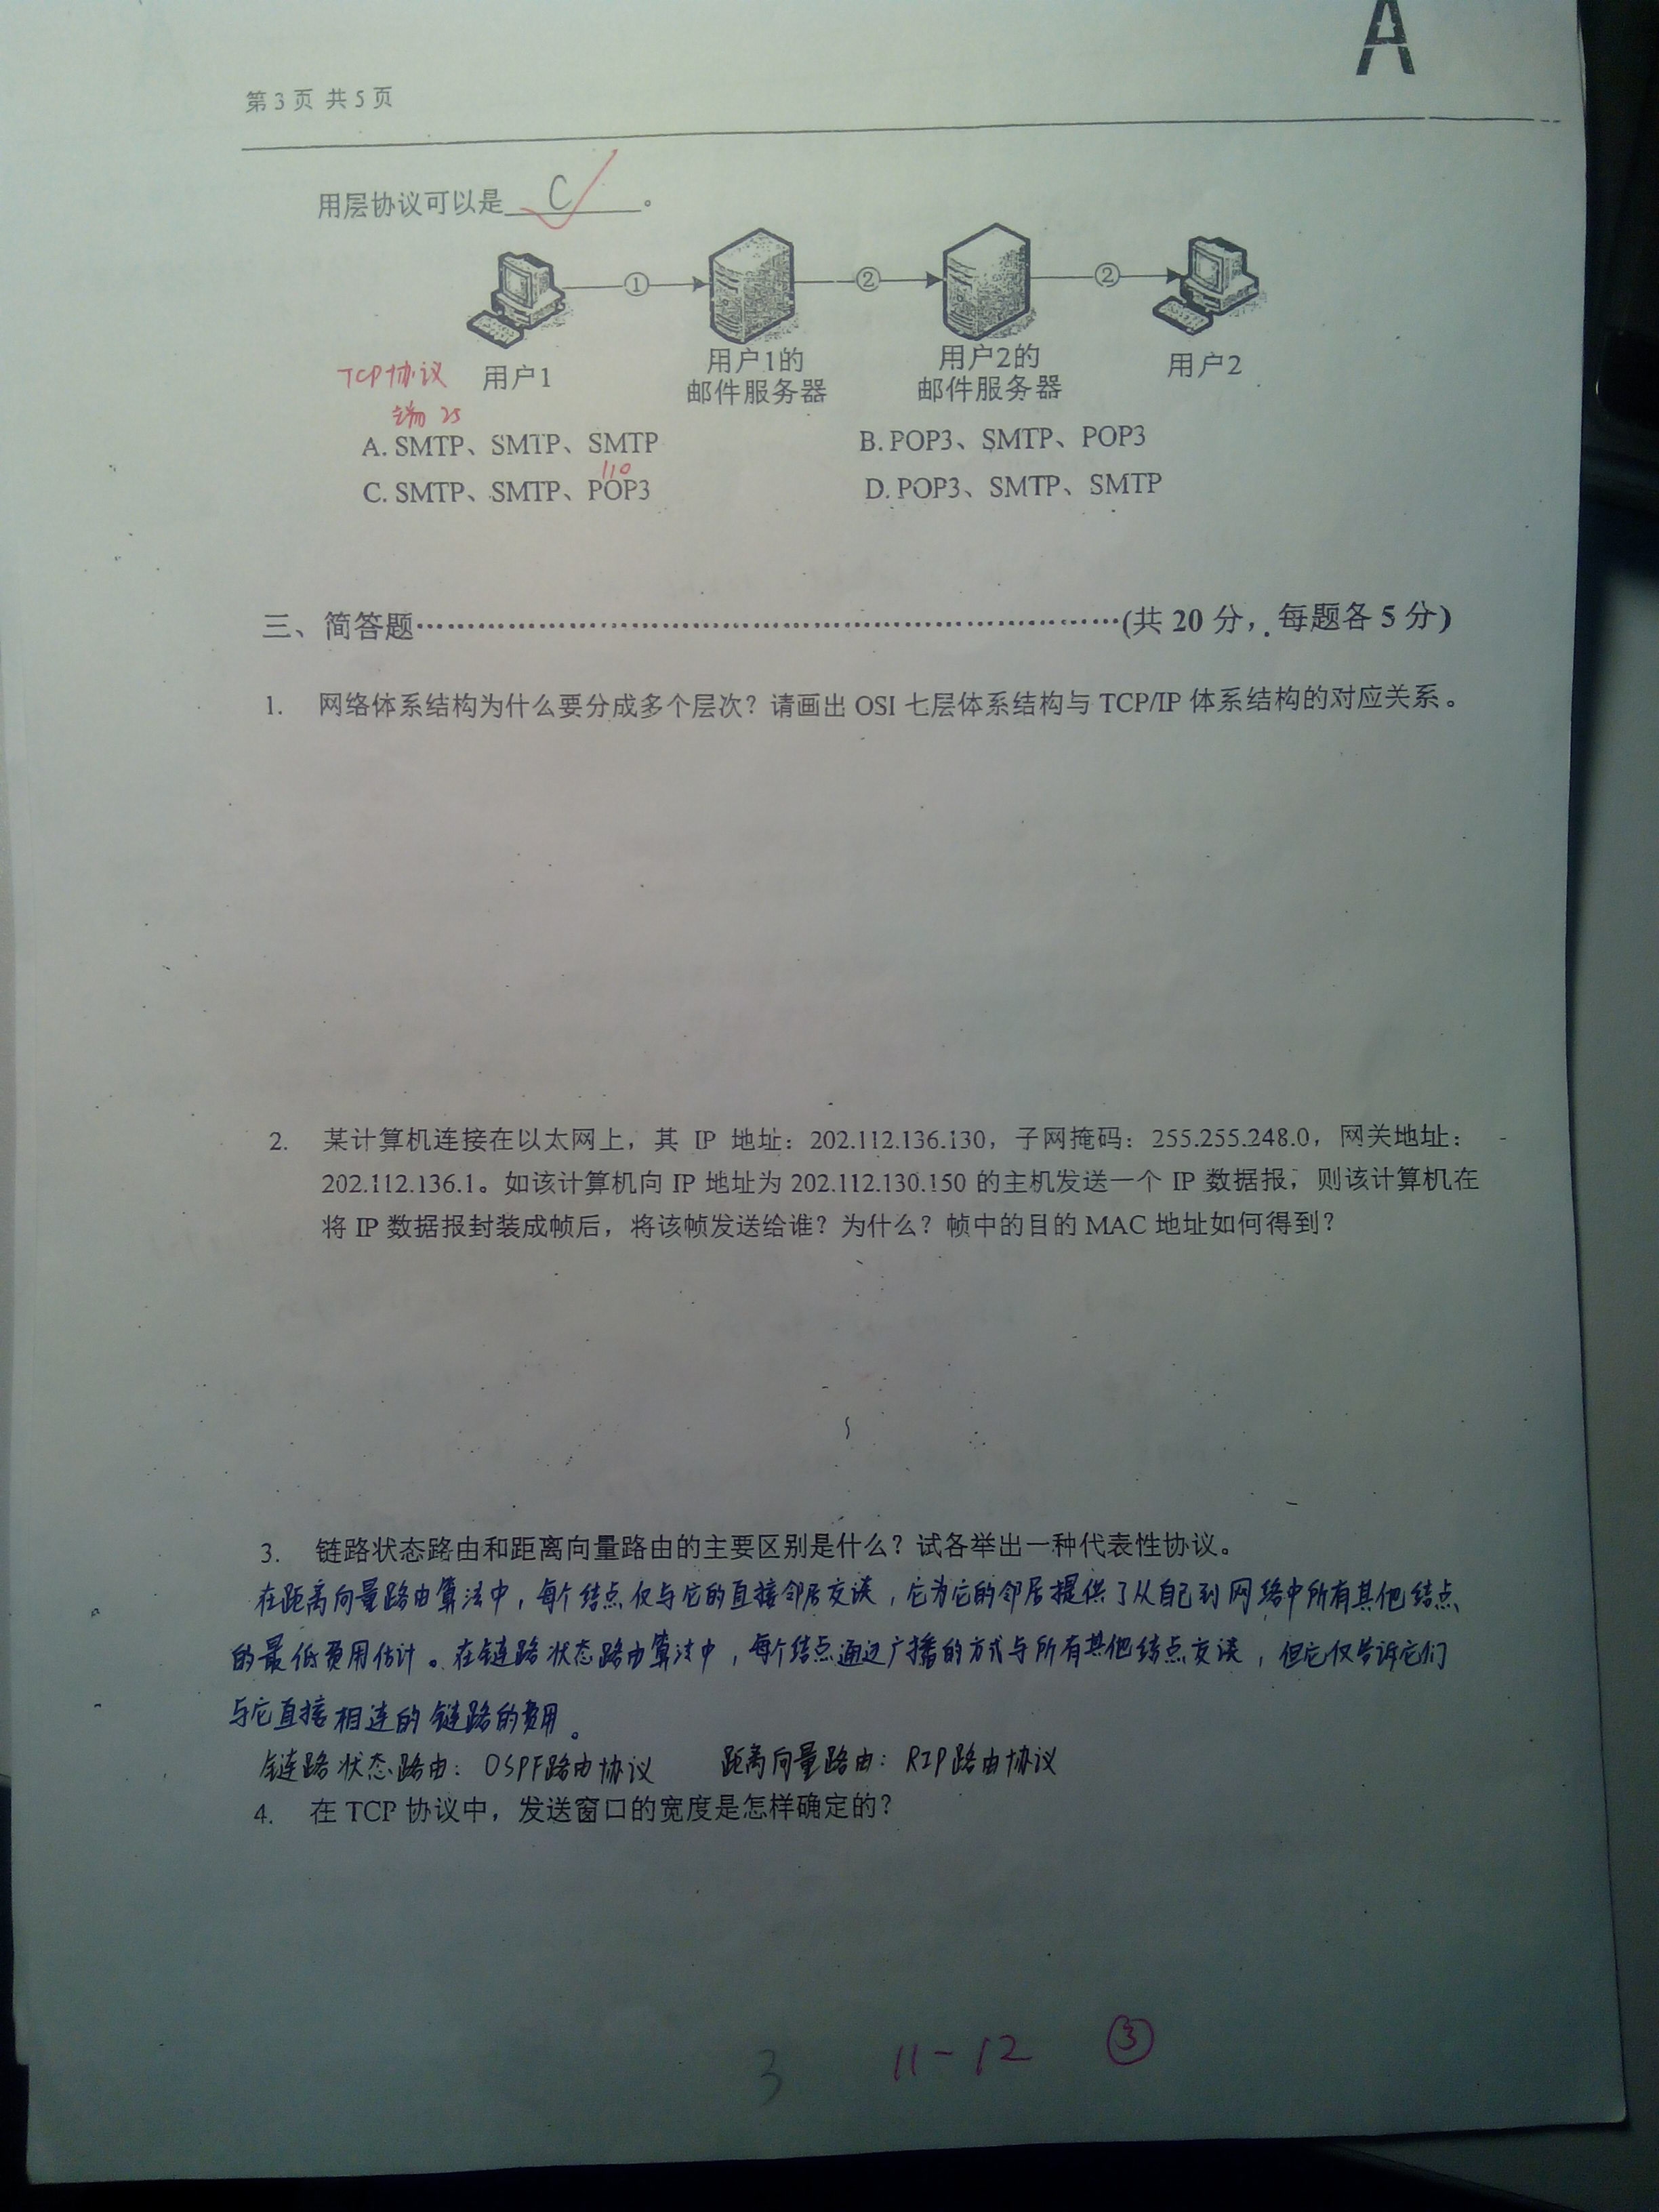 A
第3页 共5页
用层协议可以是 C 。
① ② ②
用户1 用户1的 用户2的 用户2
邮件服务器 邮件服务器
TCP协议
端 25
A. SMTP、SMTP、SMTP B. POP3、SMTP、POP3
110
C. SMTP、SMTP、POP3 D. POP3、SMTP、SMTP
三、简答题……………………………………………………………(共 20 分，每题各 5 分)
1. 网络体系结构为什么要分成多个层次？请画出 OSI 七层体系结构与 TCP/IP 体系结构的对应关系。
2. 某计算机连接在以太网上，其 IP 地址：202.112.136.130，子网掩码：255.255.248.0，网关地址：
202.112.136.1。如该计算机向 IP 地址为 202.112.130.150 的主机发送一个 IP 数据报，则该计算机在
将 IP 数据报封装成帧后，将该帧发送给谁？为什么？帧中的目的 MAC 地址如何得到？
3. 链路状态路由和距离向量路由的主要区别是什么？试各举出一种代表性协议。
在距离向量路由算法中，每个结点仅与它的直接邻居交谈，它为它的邻居提供了从自己到网络中所有其他结点
的最低费用估计。在链路状态路由算法中，每个结点通过广播的方式与所有其他结点交谈，但它仅告诉它们
与它直接相连的链路的费用。
链路状态路由：OSPF路由协议 距离向量路由：RIP路由协议
4. 在 TCP 协议中，发送窗口的宽度是怎样确定的？
3 11-12 ③